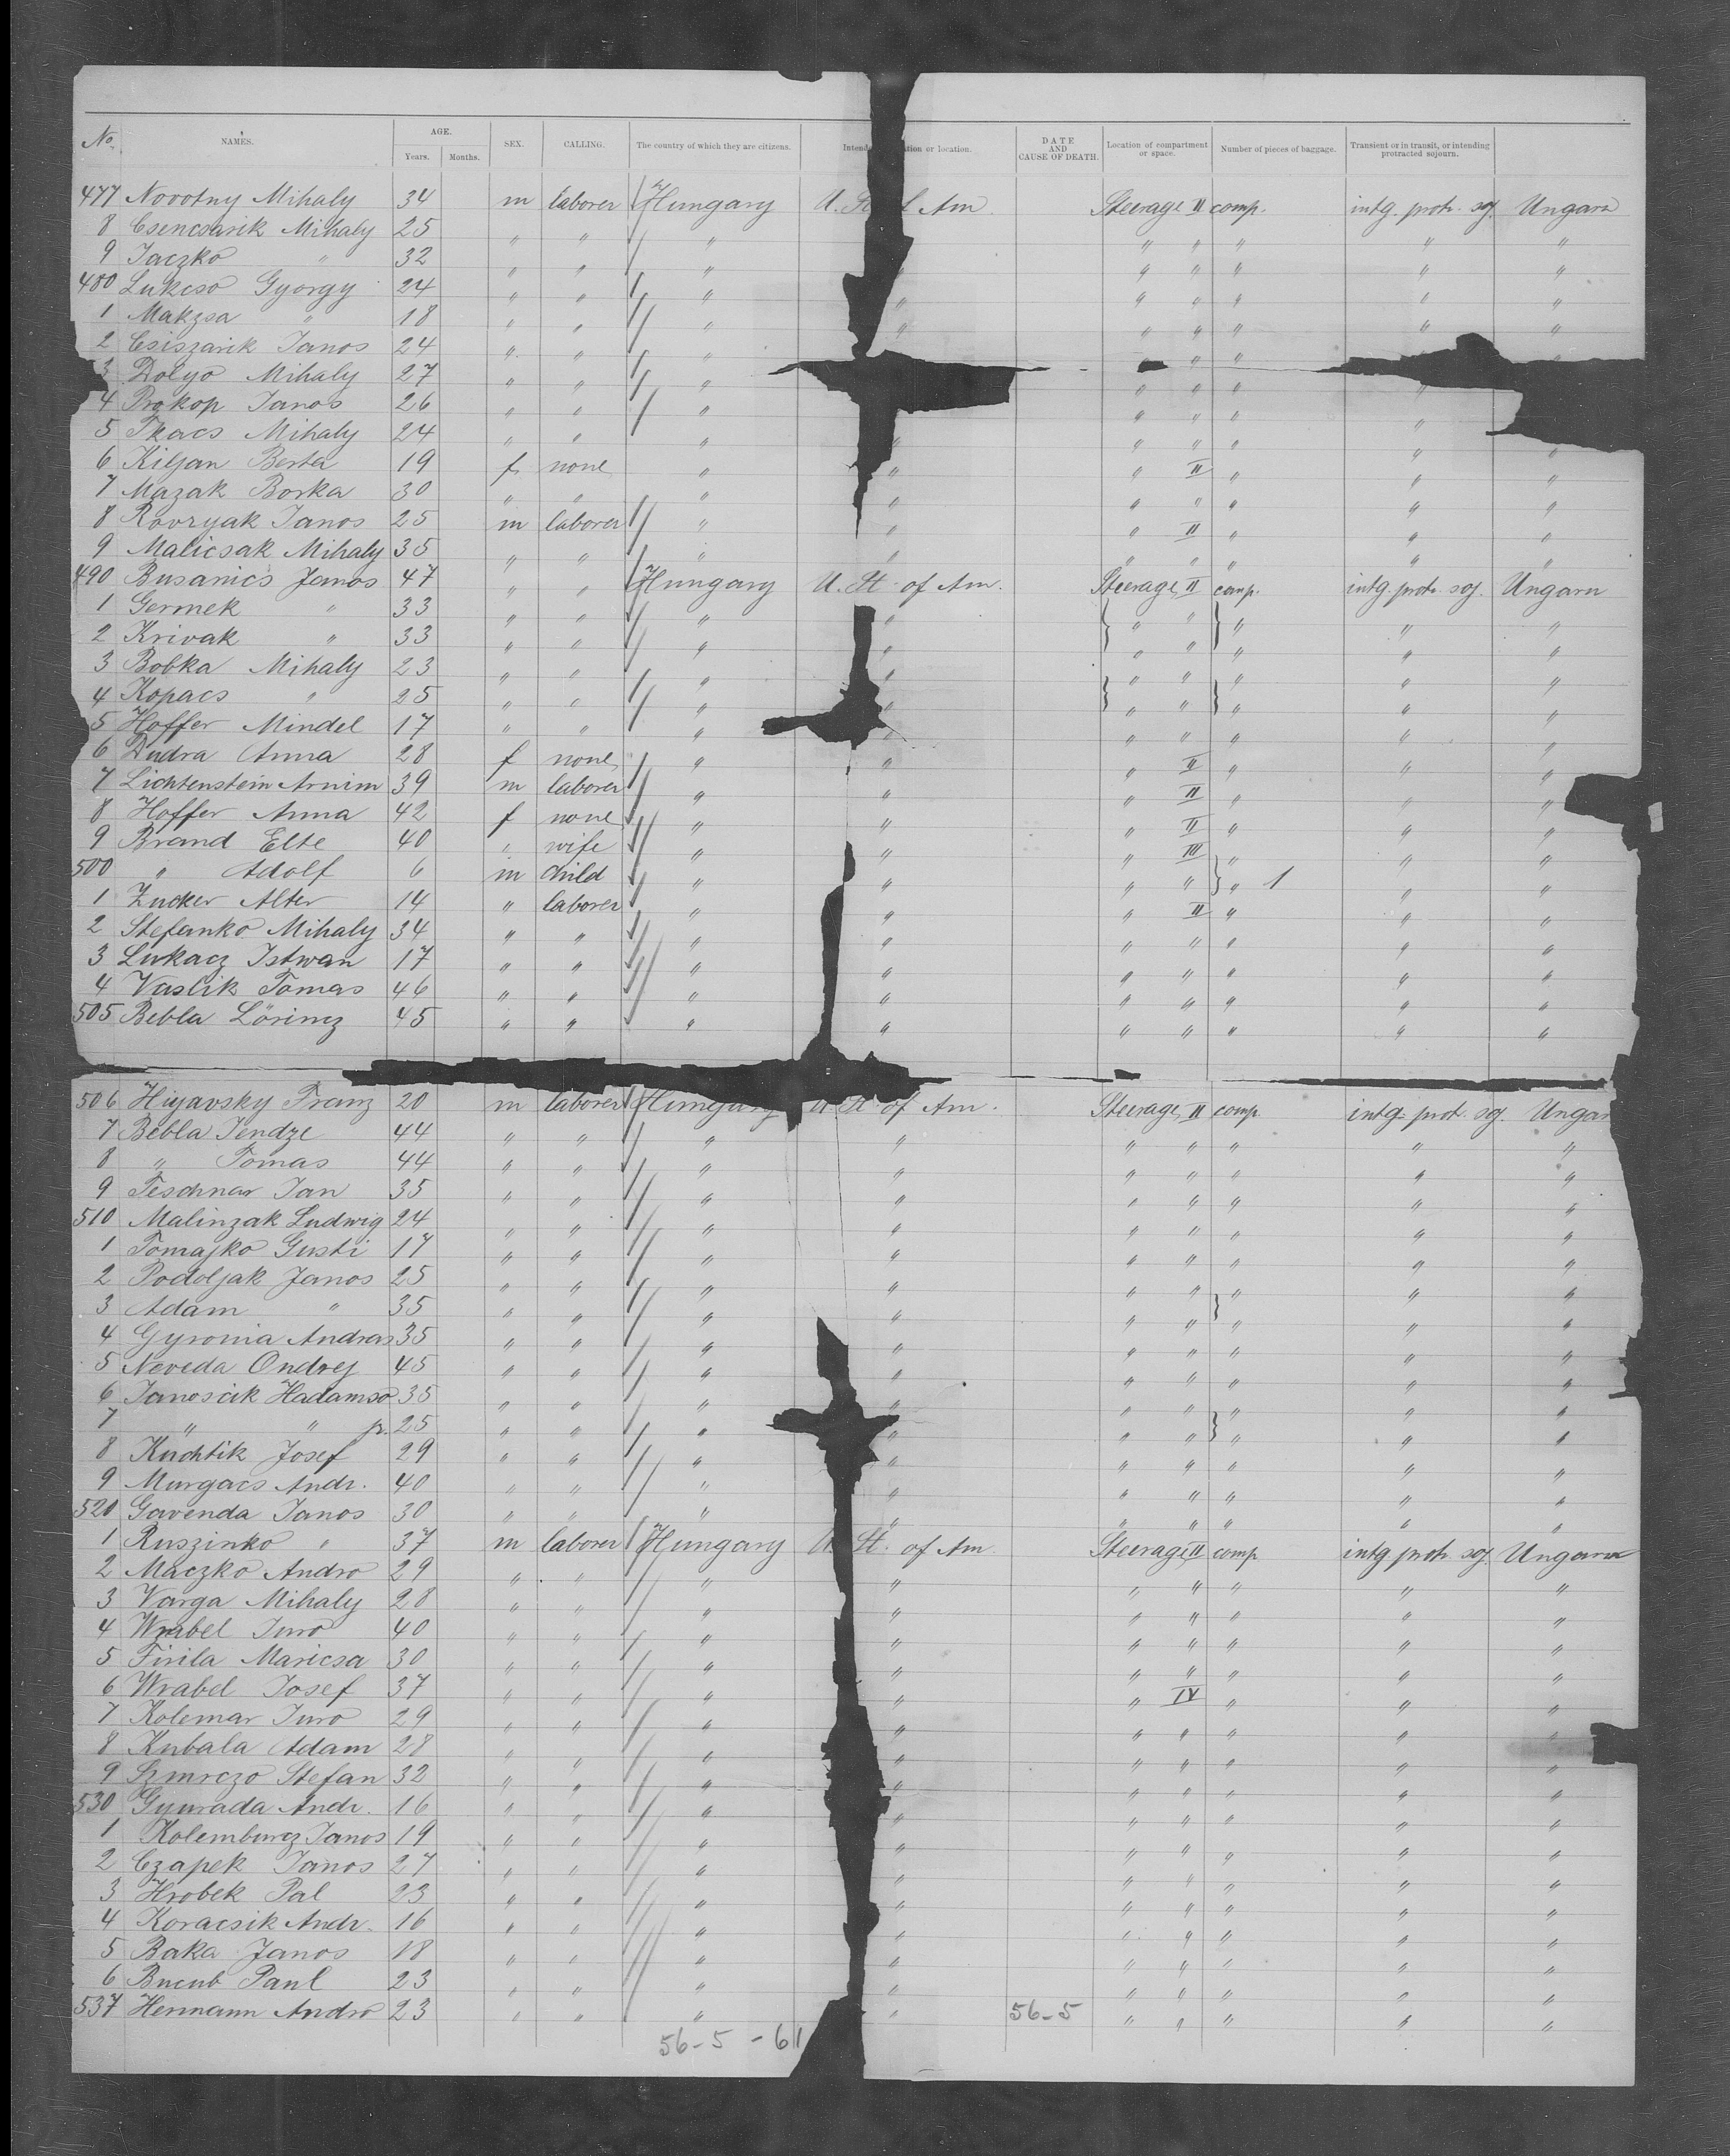 No. NAMES. AGE. Years. Months. SEX. CALLING. The country of which they are citizens. Intend ation or location. DATE AND CAUSE OF DEATH. Location of compartment or space. Number of pieces of baggage. Transient or in transit, or intending protracted sojourn.
477 Novotny Mihaly 34 m laborer Hungary U. St Am Steerage II comp. intg. protr. soj. Ungarn
8 Csencsarik Mihaly 25 " " " " " " " "
9 Jaczko " 32 " " " " " " " "
480 Lukcso Gyorgy 24 " " " " " " " " "
1 Makzsa " 18 " " " " " " " " "
2 Csiszarik Janos 24 " " " " " "
3 Dolyo Mihaly 27 " " " " " " "
4 Prokop Janos 26 " " " " " " "
5 Tkacs Mihaly 24 " " " " " " " " "
6 Kiljan Berta 19 f none " " " II " " "
7 Mazak Borka 30 " " " " " " " " "
8 Rovzyak Janos 25 m laborer " " " II " " "
9 Malicsak Mihaly 35 " " " " " " " " "
490 Busanics Janos 47 " " Hungary U. St. of Am. Steerage II comp. intg. protr. soj. Ungarn
1 Germek " 33 " " " " " " " " "
2 Krivak " 33 " " " " " " " " "
3 Bobka Mihaly 23 " " " " " " " " "
4 Kopacs " 25 " " " " " " " " "
5 Hoffer Mindel 17 " " " " " " " " "
6 Dudra Anna 28 f none " " " II " " "
7 Lichtenstein Arnim 39 m laborer " " " II " " "
8 Hoffer Anna 42 f none " " " II " " "
9 Brand Elte 40 " wife " " " III " " "
500 " Adolf 6 m child " " " " " 1 " "
1 Zucker Alter 14 " laborer " " " II " " "
2 Stefanko Mihaly 34 " " " " " " " " "
3 Lukacz Istwan 17 " " " " " " " " "
4 Vaslik Tomas 46 " " " " " " " " "
505 Bebla Lörincz 45 " " " " " " " " "
506 Hiyavsky Franz 20 m laborer Hungary U. St. of Am. Steerage II comp. intg. protr. soj. Ungar
7 Bebla Jendze 44 " " " " " " " " "
8 " Tomas 44 " " " " " " " " "
9 Teschnar Jan 35 " " " " " " " " "
510 Malinzak Ludwig 24 " " " " " " " " "
1 Tomajko Gusti 17 " " " " " " " " "
2 Podoljak Janos 25 " " " " " " " " "
3 Adam " 35 " " " " " " " " "
4 Gyronia Andras 35 " " " " " " " " "
5 Neveda Ondrej 45 " " " " " " " " "
6 Janoscik Hadamso 35 " " " " " " " " "
7 " " jr. 25 " " " " " " " " "
8 Kuchtik Josef 29 " " " " " " " " "
9 Murgacs Andr. 40 " " " " " " " " "
520 Gavenda Janos 30 " " " " " " " " "
1 Ruszinko " 37 m laborer Hungary U. St. of Am. Steerage II comp. intg. protr. soj. Ungarn
2 Maczko Andro 29 " " " " " " " " "
3 Varga Mihaly 28 " " " " " " " " "
4 Wrabel Juro 40 " " " " " " " " "
5 Firila Maricsa 30 " " " " " " " " "
6 Wrabel Josef 37 " " " " " IV " " "
7 Kolemar Juro 29 " " " " " " " " "
8 Kubala Adam 28 " " " " " " " " "
9 Szmrczo Stefan 32 " " " " " " " " "
530 Gyurada Andr. 16 " " " " " " " " "
1 Kolemburcz Janos 19 " " " " " " " " "
2 Czapek Janos 27 " " " " " " " " "
3 Hrobek Pal 23 " " " " " " " " "
4 Koracsik Andr. 16 " " " " " " " " "
5 Baka Janos 18 " " " " " " " " "
6 Bucub Paul 23 " " " " " " " " "
537 Hermann Andro 23 " " " " 56-5 " " " " "
56-5 - 61